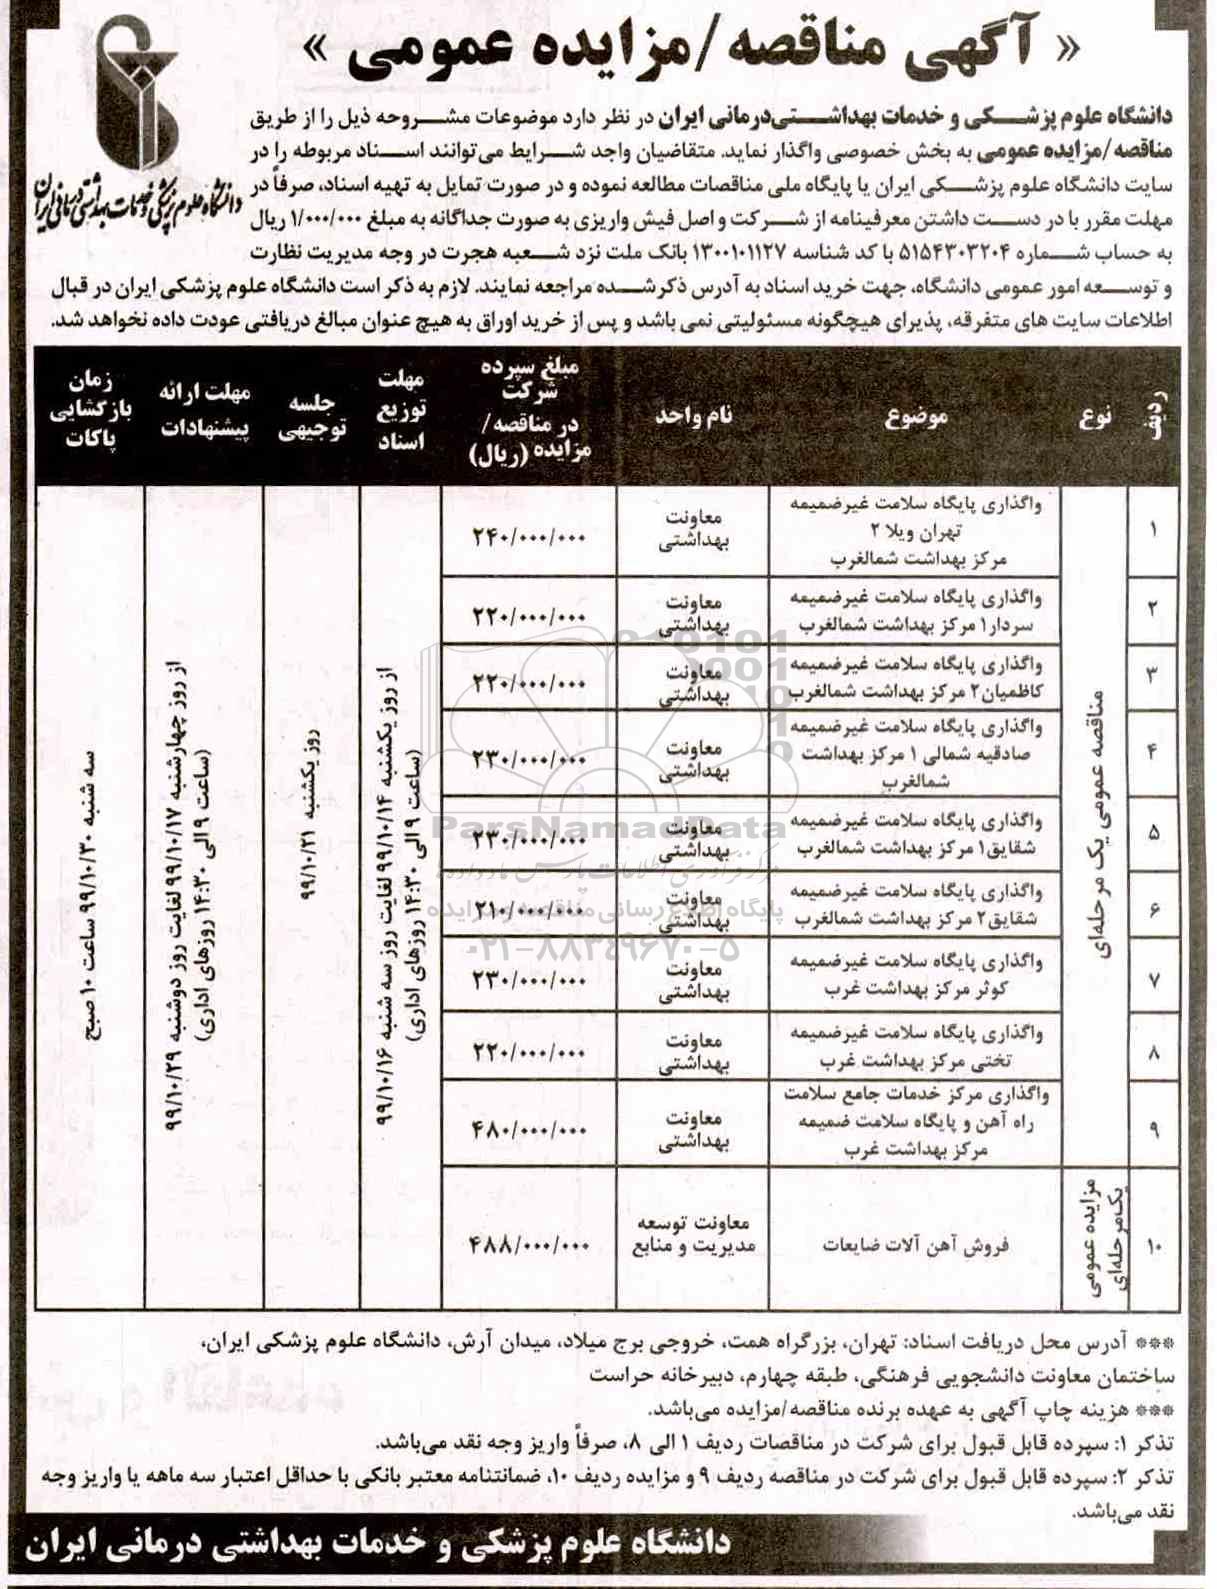 « آگهی مناقصه/مزایده عمومی »
دانشگاه علوم پزشکی و خدمات بهداشتی درمانی ایران
دانشگاه علوم پزشکی و خدمات بهداشتی‌درمانی ایران در نظر دارد موضوعات مشروحه ذیل را از طریق
مناقصه/مزایده عمومی به بخش خصوصی واگذار نماید. متقاضیان واجد شرایط می‌توانند اسناد مربوطه را در
سایت دانشگاه علوم پزشکی ایران یا پایگاه ملی مناقصات مطالعه نموده و در صورت تمایل به تهیه اسناد، صرفاً در
مهلت مقرر با در دست داشتن معرفینامه از شرکت و اصل فیش واریزی به صورت جداگانه به مبلغ ۱/۰۰۰/۰۰۰ ریال
به حساب شماره ۵۱۵۴۳۰۳۲۰۴ با کد شناسه ۱۳۰۰۱۰۱۱۲۷ بانک ملت نزد شعبه هجرت در وجه مدیریت نظارت
و توسعه امور عمومی دانشگاه، جهت خرید اسناد به آدرس ذکرشده مراجعه نمایند. لازم به ذکر است دانشگاه علوم پزشکی ایران در قبال
اطلاعات سایت های متفرقه، پذیرای هیچگونه مسئولیتی نمی باشد و پس از خرید اوراق به هیچ عنوان مبالغ دریافتی عودت داده نخواهد شد.
ردیف
نوع
موضوع
نام واحد
مبلغ سپرده
شرکت
در مناقصه/
مزایده (ریال)
مهلت
توزیع
اسناد
جلسه
توجیهی
مهلت ارائه
پیشنهادات
زمان
بازگشایی
پاکات
مناقصه عمومی یک مرحله‌ای
۱
واگذاری پایگاه سلامت غیرضمیمه
تهران ویلا ۲
مرکز بهداشت شمالغرب
معاونت
بهداشتی
۲۴۰/۰۰۰/۰۰۰
۲
واگذاری پایگاه سلامت غیرضمیمه
سردار۱ مرکز بهداشت شمالغرب
معاونت
بهداشتی
۲۲۰/۰۰۰/۰۰۰
۳
واگذاری پایگاه سلامت غیرضمیمه
کاظمیان۲ مرکز بهداشت شمالغرب
معاونت
بهداشتی
۲۲۰/۰۰۰/۰۰۰
۴
واگذاری پایگاه سلامت غیرضمیمه
صادقیه شمالی ۱ مرکز بهداشت
شمالغرب
معاونت
بهداشتی
۲۳۰/۰۰۰/۰۰۰
۵
واگذاری پایگاه سلامت غیرضمیمه
شقایق۱ مرکز بهداشت شمالغرب
معاونت
بهداشتی
۲۳۰/۰۰۰/۰۰۰
۶
واگذاری پایگاه سلامت غیرضمیمه
شقایق۲ مرکز بهداشت شمالغرب
معاونت
بهداشتی
۲۱۰/۰۰۰/۰۰۰
۷
واگذاری پایگاه سلامت غیرضمیمه
کوثر مرکز بهداشت غرب
معاونت
بهداشتی
۲۳۰/۰۰۰/۰۰۰
۸
واگذاری پایگاه سلامت غیرضمیمه
تختی مرکز بهداشت غرب
معاونت
بهداشتی
۲۲۰/۰۰۰/۰۰۰
۹
واگذاری مرکز خدمات جامع سلامت
راه آهن و پایگاه سلامت ضمیمه
مرکز بهداشت غرب
معاونت
بهداشتی
۴۸۰/۰۰۰/۰۰۰
۱۰
مزایده عمومی
یک‌مرحله‌ای
فروش آهن آلات ضایعات
معاونت توسعه
مدیریت و منابع
۴۸۸/۰۰۰/۰۰۰
از روز یکشنبه ۹۹/۱۰/۱۴ لغایت روز سه شنبه ۹۹/۱۰/۱۶
(ساعت ۹ الی ۱۴:۳۰ روزهای اداری)
روز یکشنبه ۹۹/۱۰/۲۱
از روز چهارشنبه ۹۹/۱۰/۱۷ لغایت روز دوشنبه ۹۹/۱۰/۲۹
(ساعت ۹ الی ۱۴:۳۰ روزهای اداری)
سه شنبه ۹۹/۱۰/۳۰ ساعت ۱۰ صبح
ParsNamadData
مرکز فرآوری اطلاعات پارس نماد داده‌ها
پایگاه اطلاع رسانی مناقصه و مزایده
۰۲۱-۸۸۳۴۹۶۷۰-۵
*** آدرس محل دریافت اسناد: تهران، بزرگراه همت، خروجی برج میلاد، میدان آرش، دانشگاه علوم پزشکی ایران،
ساختمان معاونت دانشجویی فرهنگی، طبقه چهارم، دبیرخانه حراست
*** هزینه چاپ آگهی به عهده برنده مناقصه/مزایده می‌باشد.
تذکر ۱: سپرده قابل قبول برای شرکت در مناقصات ردیف ۱ الی ۸، صرفاً واریز وجه نقد می‌باشد.
تذکر ۲: سپرده قابل قبول برای شرکت در مناقصه ردیف ۹ و مزایده ردیف ۱۰، ضمانتنامه معتبر بانکی با حداقل اعتبار سه ماهه یا واریز وجه
نقد می‌باشد.
دانشگاه علوم پزشکی و خدمات بهداشتی درمانی ایران